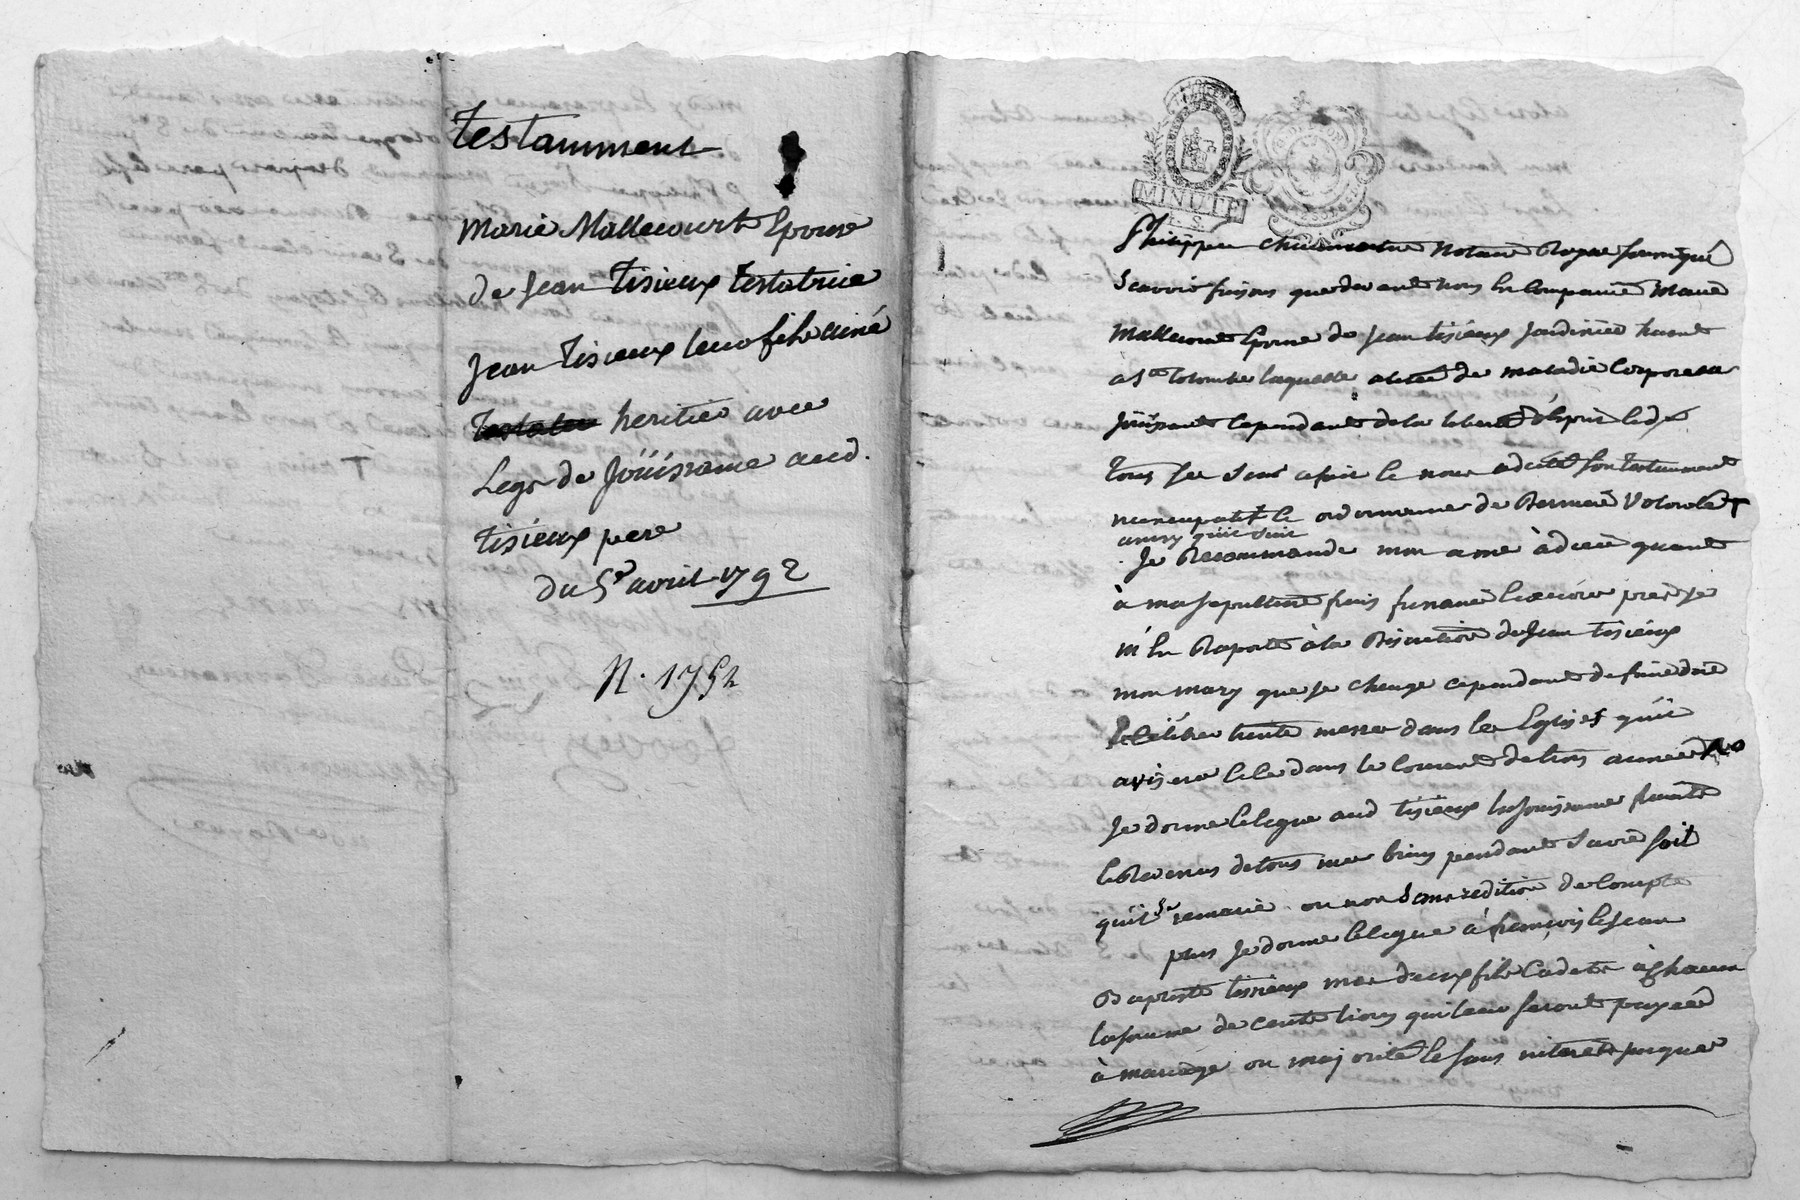 Testamment
Marie Mallecourt Epouse
de Jean Tisieux testatrice
Jean Tisieux leur fils ainé
heritier avec
Legs de Joüissance aud.
Tisieux pere
du 5e avril 1792
N. 1752
MINUTE
Philippe Notaire Royal soussigné
Scavoir faisons que devant nous En Compareüe Marie
Mallecourt Epouse de Jean tisieux Jardinier
à Ste Colombe laquelle de maladie Corporelle
Joüissante Cependant de la liberté d'Esprit
tous ses sens a fait son testamment
nuncupatif Et ordonnance de Derniere Volonté
ainsy qu'il suit
Je Recommande mon ame à dieu quant
à ma sepulture frais funeraire prieres je
m'En Raporte à la Discretion de Jean tisieux
mon mary que je charge cependant de faire dire
Et Célébrer trente messes dans les Eglises qu'il
avisera Cela dans le Courant de trois années
Je donne Et legue aud tisieux la Joüissance
les Revenus de tous mes biens pendant sa vie soit
qu'il se remarie ou non sans redition de Compte
plus Je donne Et legue à françois Et Jean
Baptiste tisieux mes deux fils Cadets à Chacun
la somme de cents livres qui leur seront payées
à mariage ou majorité Et sans interest jusques